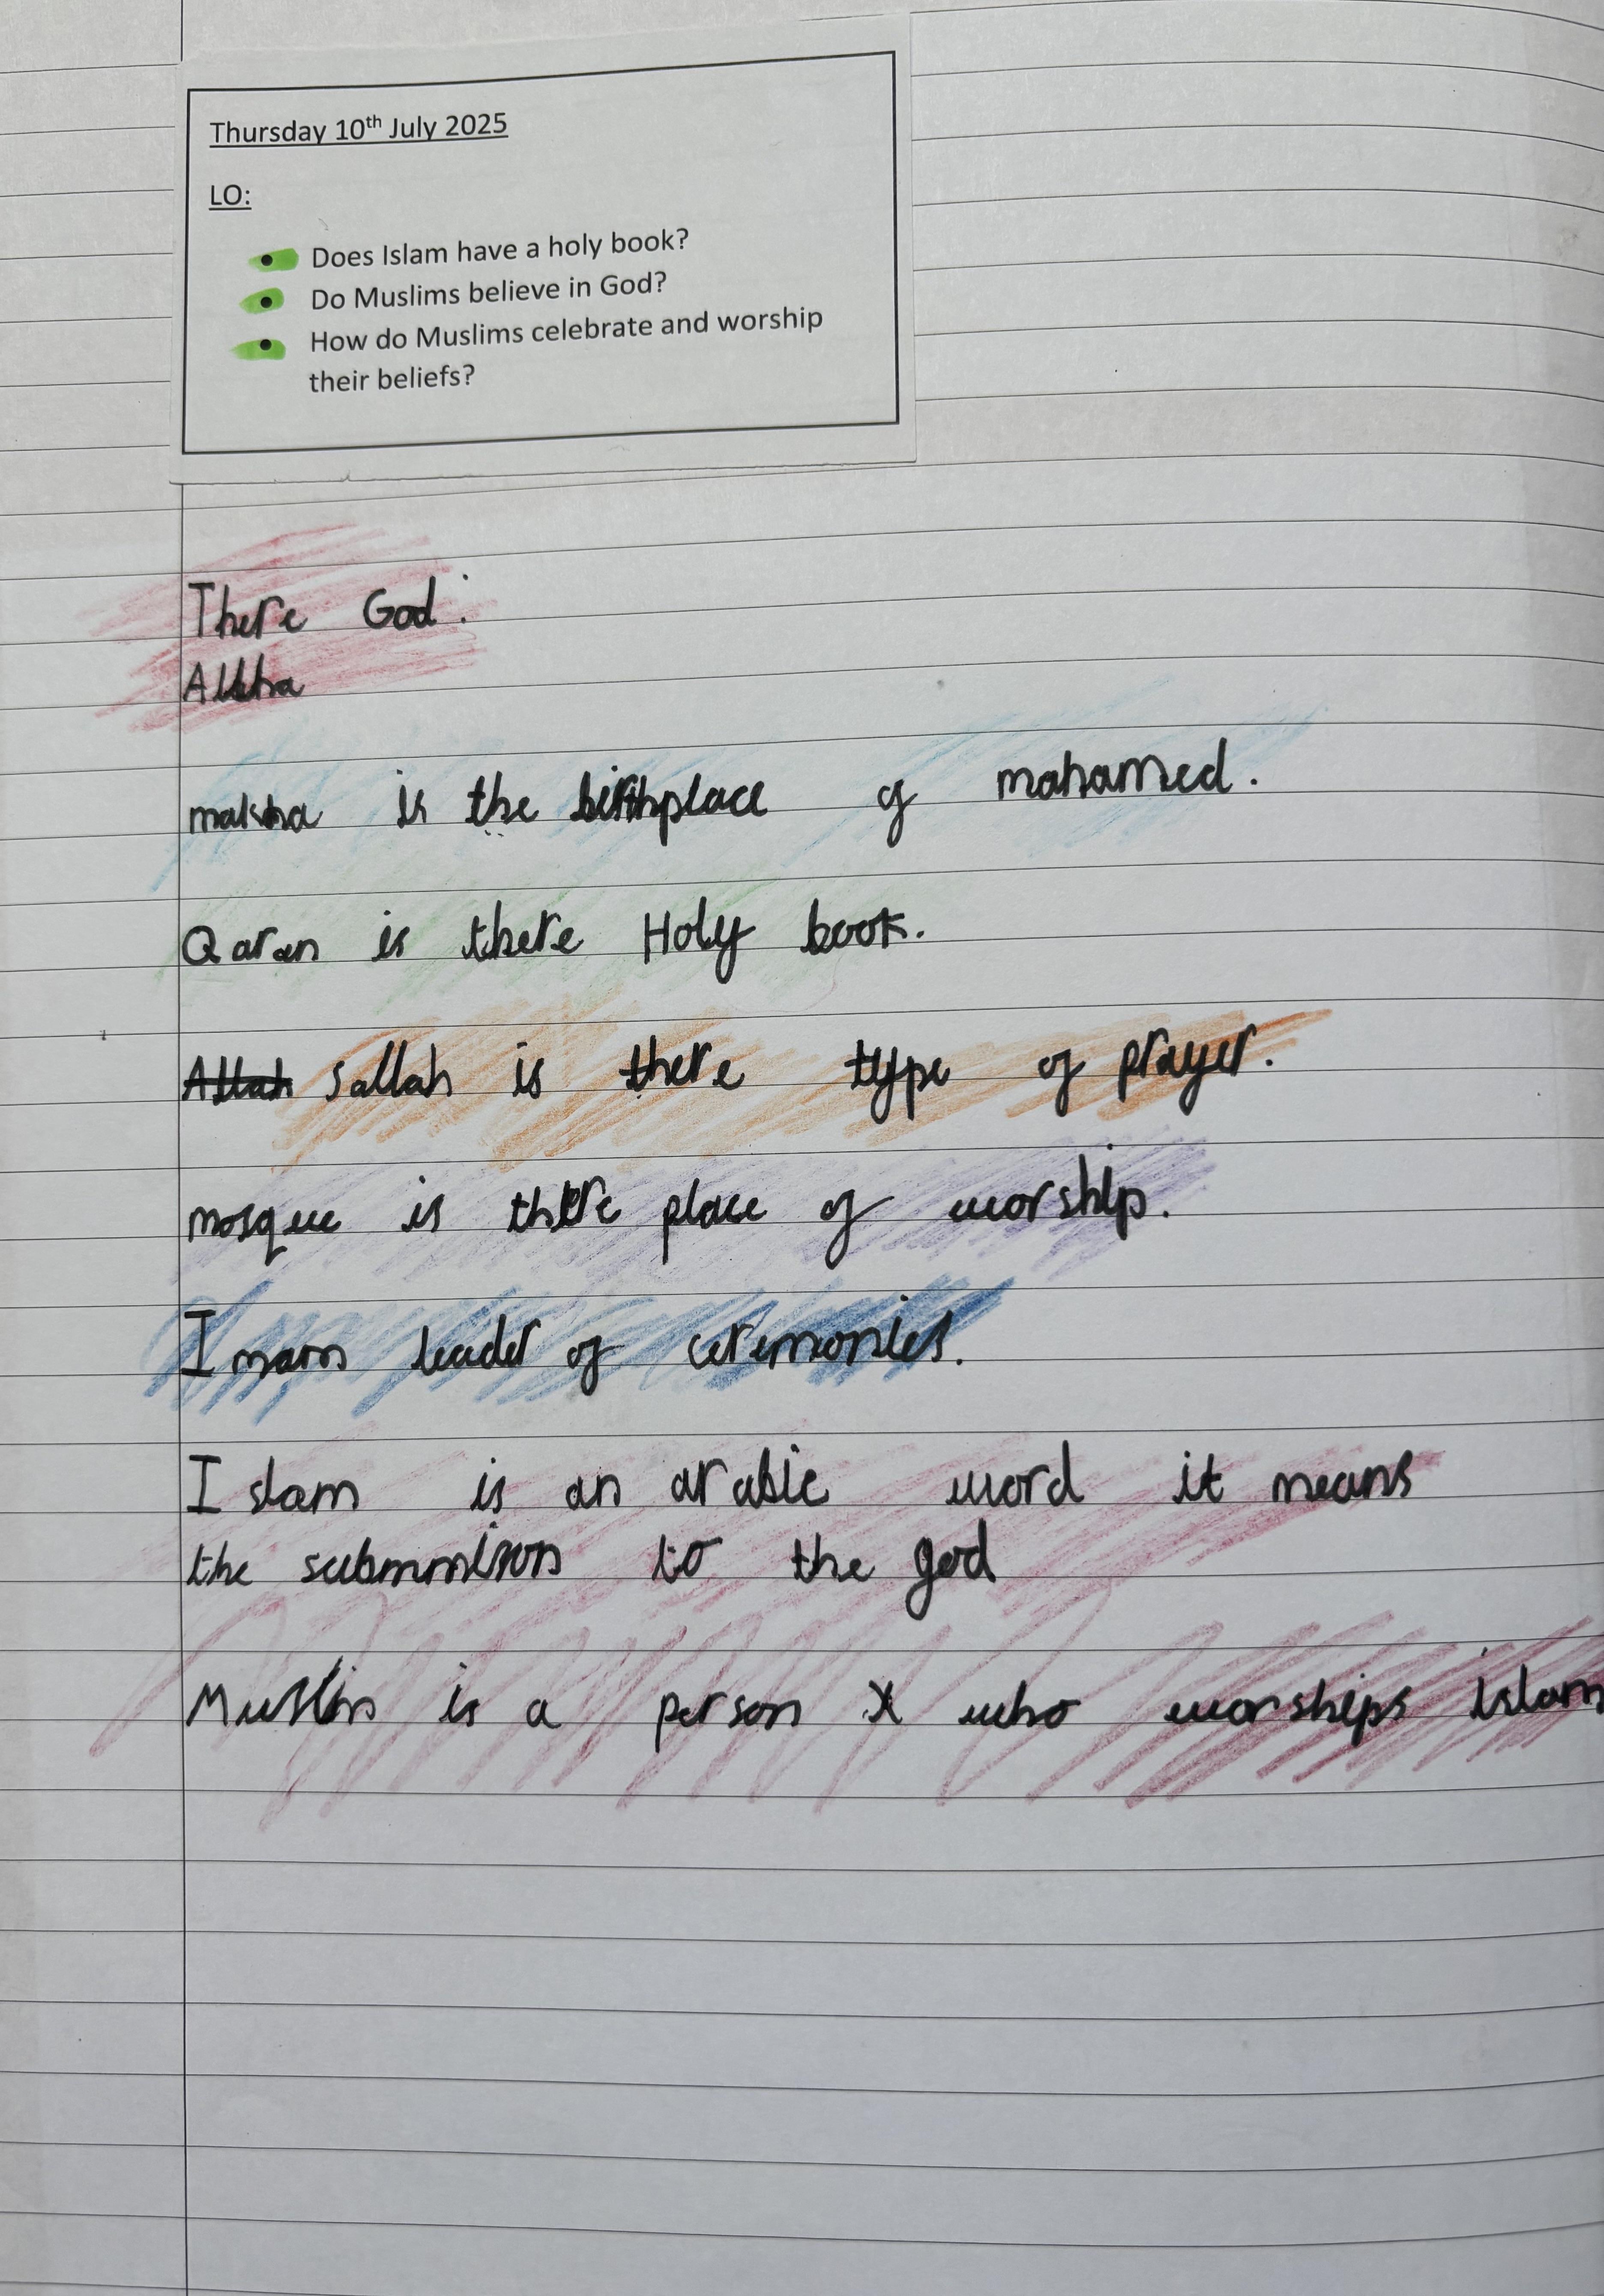 Thursday 10th July 2025
LO:
• Does Islam have a holy book?
• Do Muslims believe in God?
• How do Muslims celebrate and worship
their beliefs?
There God:
Allha
makha is the birthplace of mahamed.
Qaran is there Holy book.
Allah Sallah is there type of prayer.
mosque is there place of worship.
Imam leader of ceremonies.
Islam is an arabic word it means
the submmison to the god
Muslim is a person x who worships islam